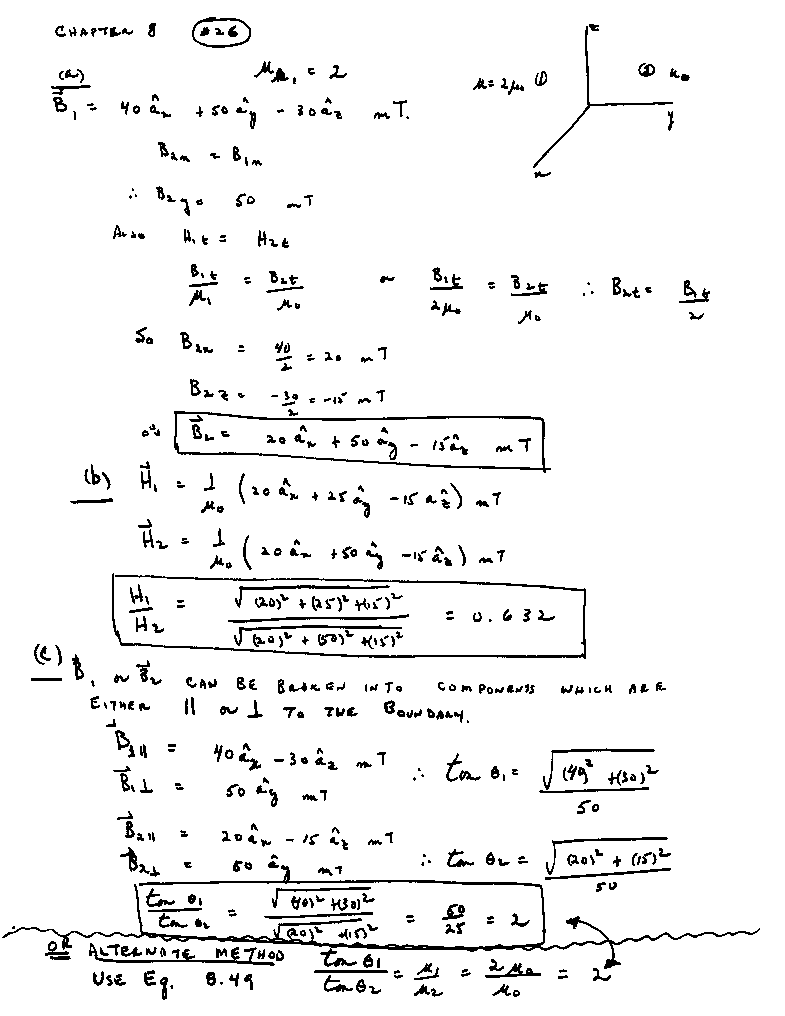 CHAPTER 8 #26
(a) μR₁ = 2
B⃗₁ = 40 âx + 50 ây - 30 âz mT.
z
μ = 2μ₀ ① ② μ₀
y
x
B₂n = B₁n
∴ B₂y = 50 mT
ALSO H₁t = H₂t
B₁t/μ₁ = B₂t/μ₀ or B₁t/2μ₀ = B₂t/μ₀ ∴ B₂t = B₁t/2
So B₂x = 40/2 = 20 mT
B₂z = -30/2 = -15 mT
or B⃗₂ = 20 âx + 50 ây - 15 âz mT
(b) H⃗₁ = 1/μ₀ (20 âx + 25 ây - 15 âz) mT
H⃗₂ = 1/μ₀ (20 âx + 50 ây - 15 âz) mT
H₁/H₂ = √((20)² + (25)² + (15)²) / √((20)² + (50)² + (15)²) = 0.632
(c) B⃗₁ or B⃗₂ CAN BE BROKEN INTO COMPONENTS WHICH ARE
EITHER || or ⊥ TO THE BOUNDARY.
B⃗₁|| = 40 âx - 30 âz mT ∴ tan θ₁ = √((40)² + (30)²) / 50
B⃗₁⊥ = 50 ây mT
B⃗₂|| = 20 âx - 15 âz mT
B⃗₂⊥ = 50 ây mT ∴ tan θ₂ = √((20)² + (15)²) / 50
tan θ₁/tan θ₂ = √((40)² + (30)²) / √((20)² + (15)²) = 50/25 = 2
OR ALTERNATE METHOD
USE Eq. 8.49 tan θ1/tan θ2 = μ₁/μ₂ = 2μ₀/μ₀ = 2